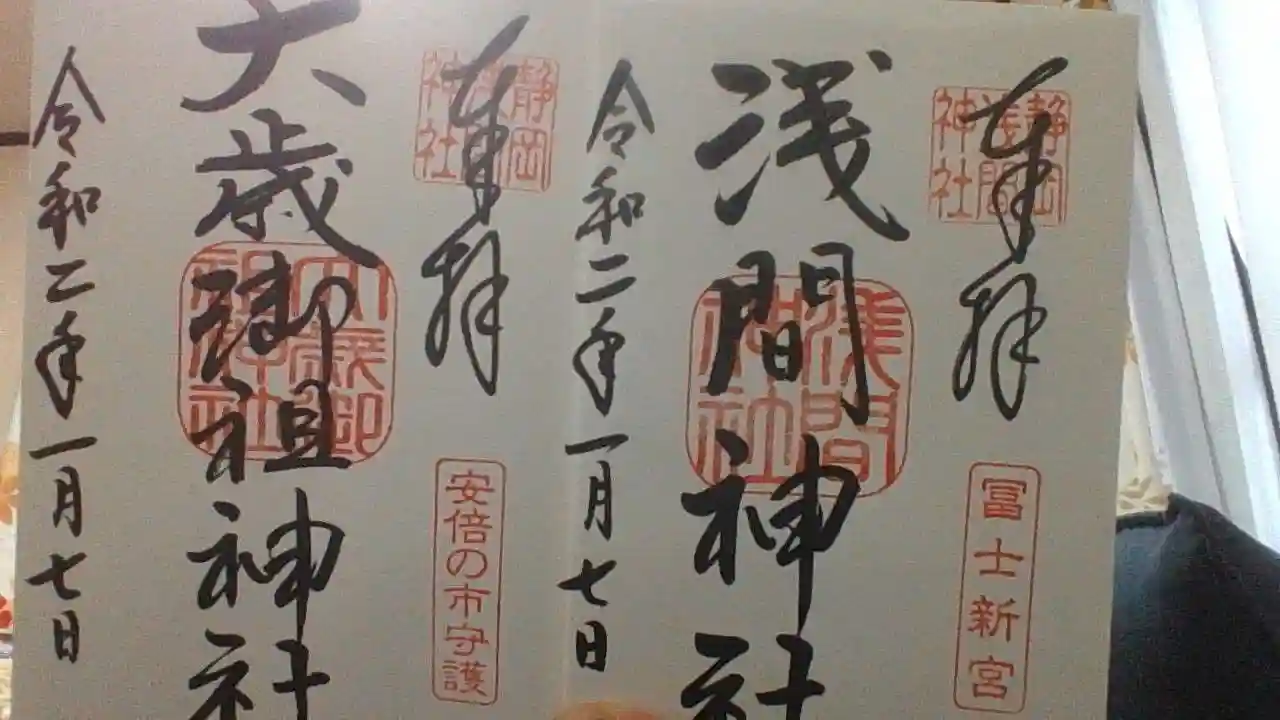 奉拝
静岡浅間神社
冨士新宮
浅間神社
浅間神社
令和二年一月七日
奉拝
静岡浅間神社
安倍の市守護
大歳御祖神社
大歳御祖神社
令和二年一月七日